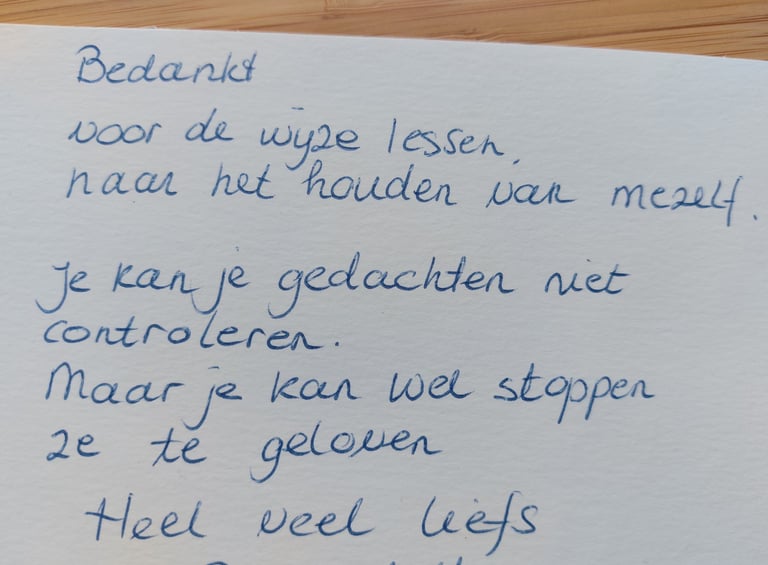 Bedankt
voor de wijze lessen,
naar het houden van mezelf.
Je kan je gedachten niet
controleren.
Maar je kan wel stoppen
ze te geloven
Heel veel liefs